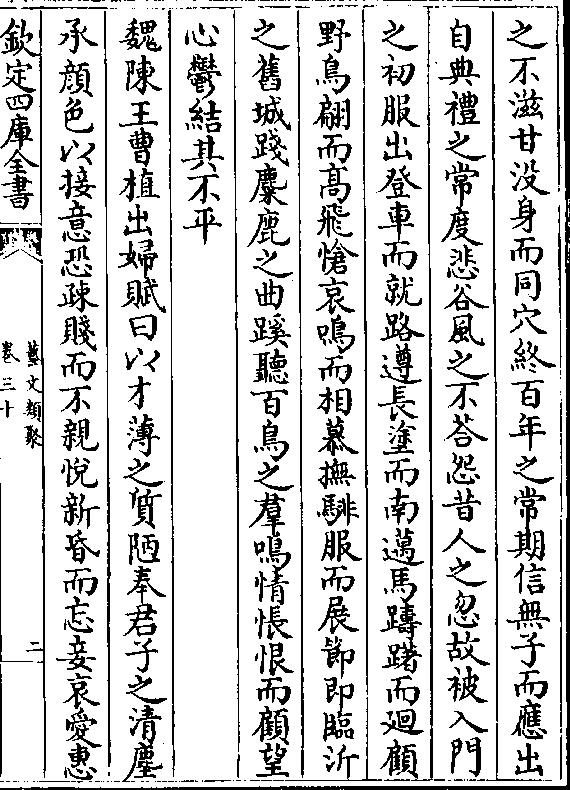 之不滋甘没身而同穴終百年之常期信無子而應出
自典禮之常度悲谷風之不荅怨昔人之忽故被入門
之初服出登車而就路遵長塗而南邁馬躊躇而廻顧
野鳥翩而髙飛愴哀鳴而相慕撫騑服而展節即臨沂
之舊城踐麋鹿之曲蹊聽百鳥之羣鳴情悵恨而顧望
心鬱結其不平
魏陳王曹植出婦賦曰以才薄之質陋奉君子之清塵
承顔色以接意恐疎賤而不親悅新昏而忘妾哀愛惠
欽定四庫全書
藝文類聚
卷三十
二